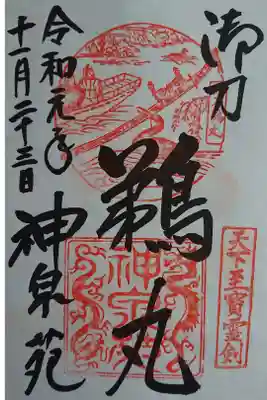 御刀
鵜丸
天下至寶霊剣
令和元年
十一月二十三日
神泉苑
神泉苑